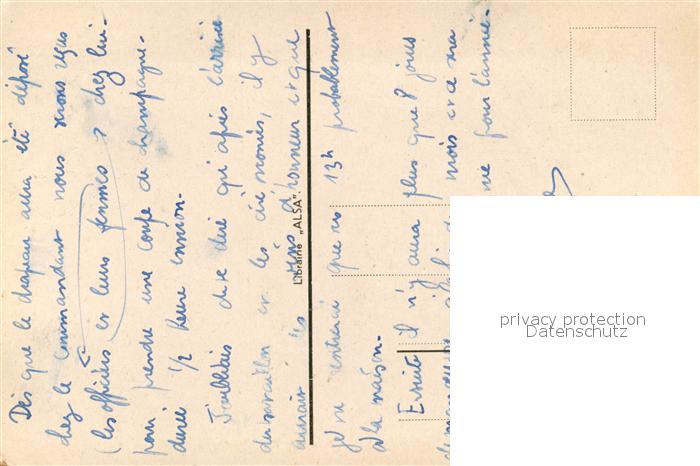 Dès que le drapeau aura été déposé
chez le commandant nous sommes reçus
(les officiers et leurs femmes) chez lui-
pour prendre une coupe de champagne-
durée 1/2 heure environ-
J'oubliais de te dire qu'après l'arrivée
du et les cérémonies, il y
aurait les vins d'honneur et que
Librairie „ALSA“
je ne rentrerai que vs 13h probablement
à la maison-
Ensuite il n'y aura plus que 8 jours
mois et ce ma
me pour l'année-
privacy protection
Datenschutz